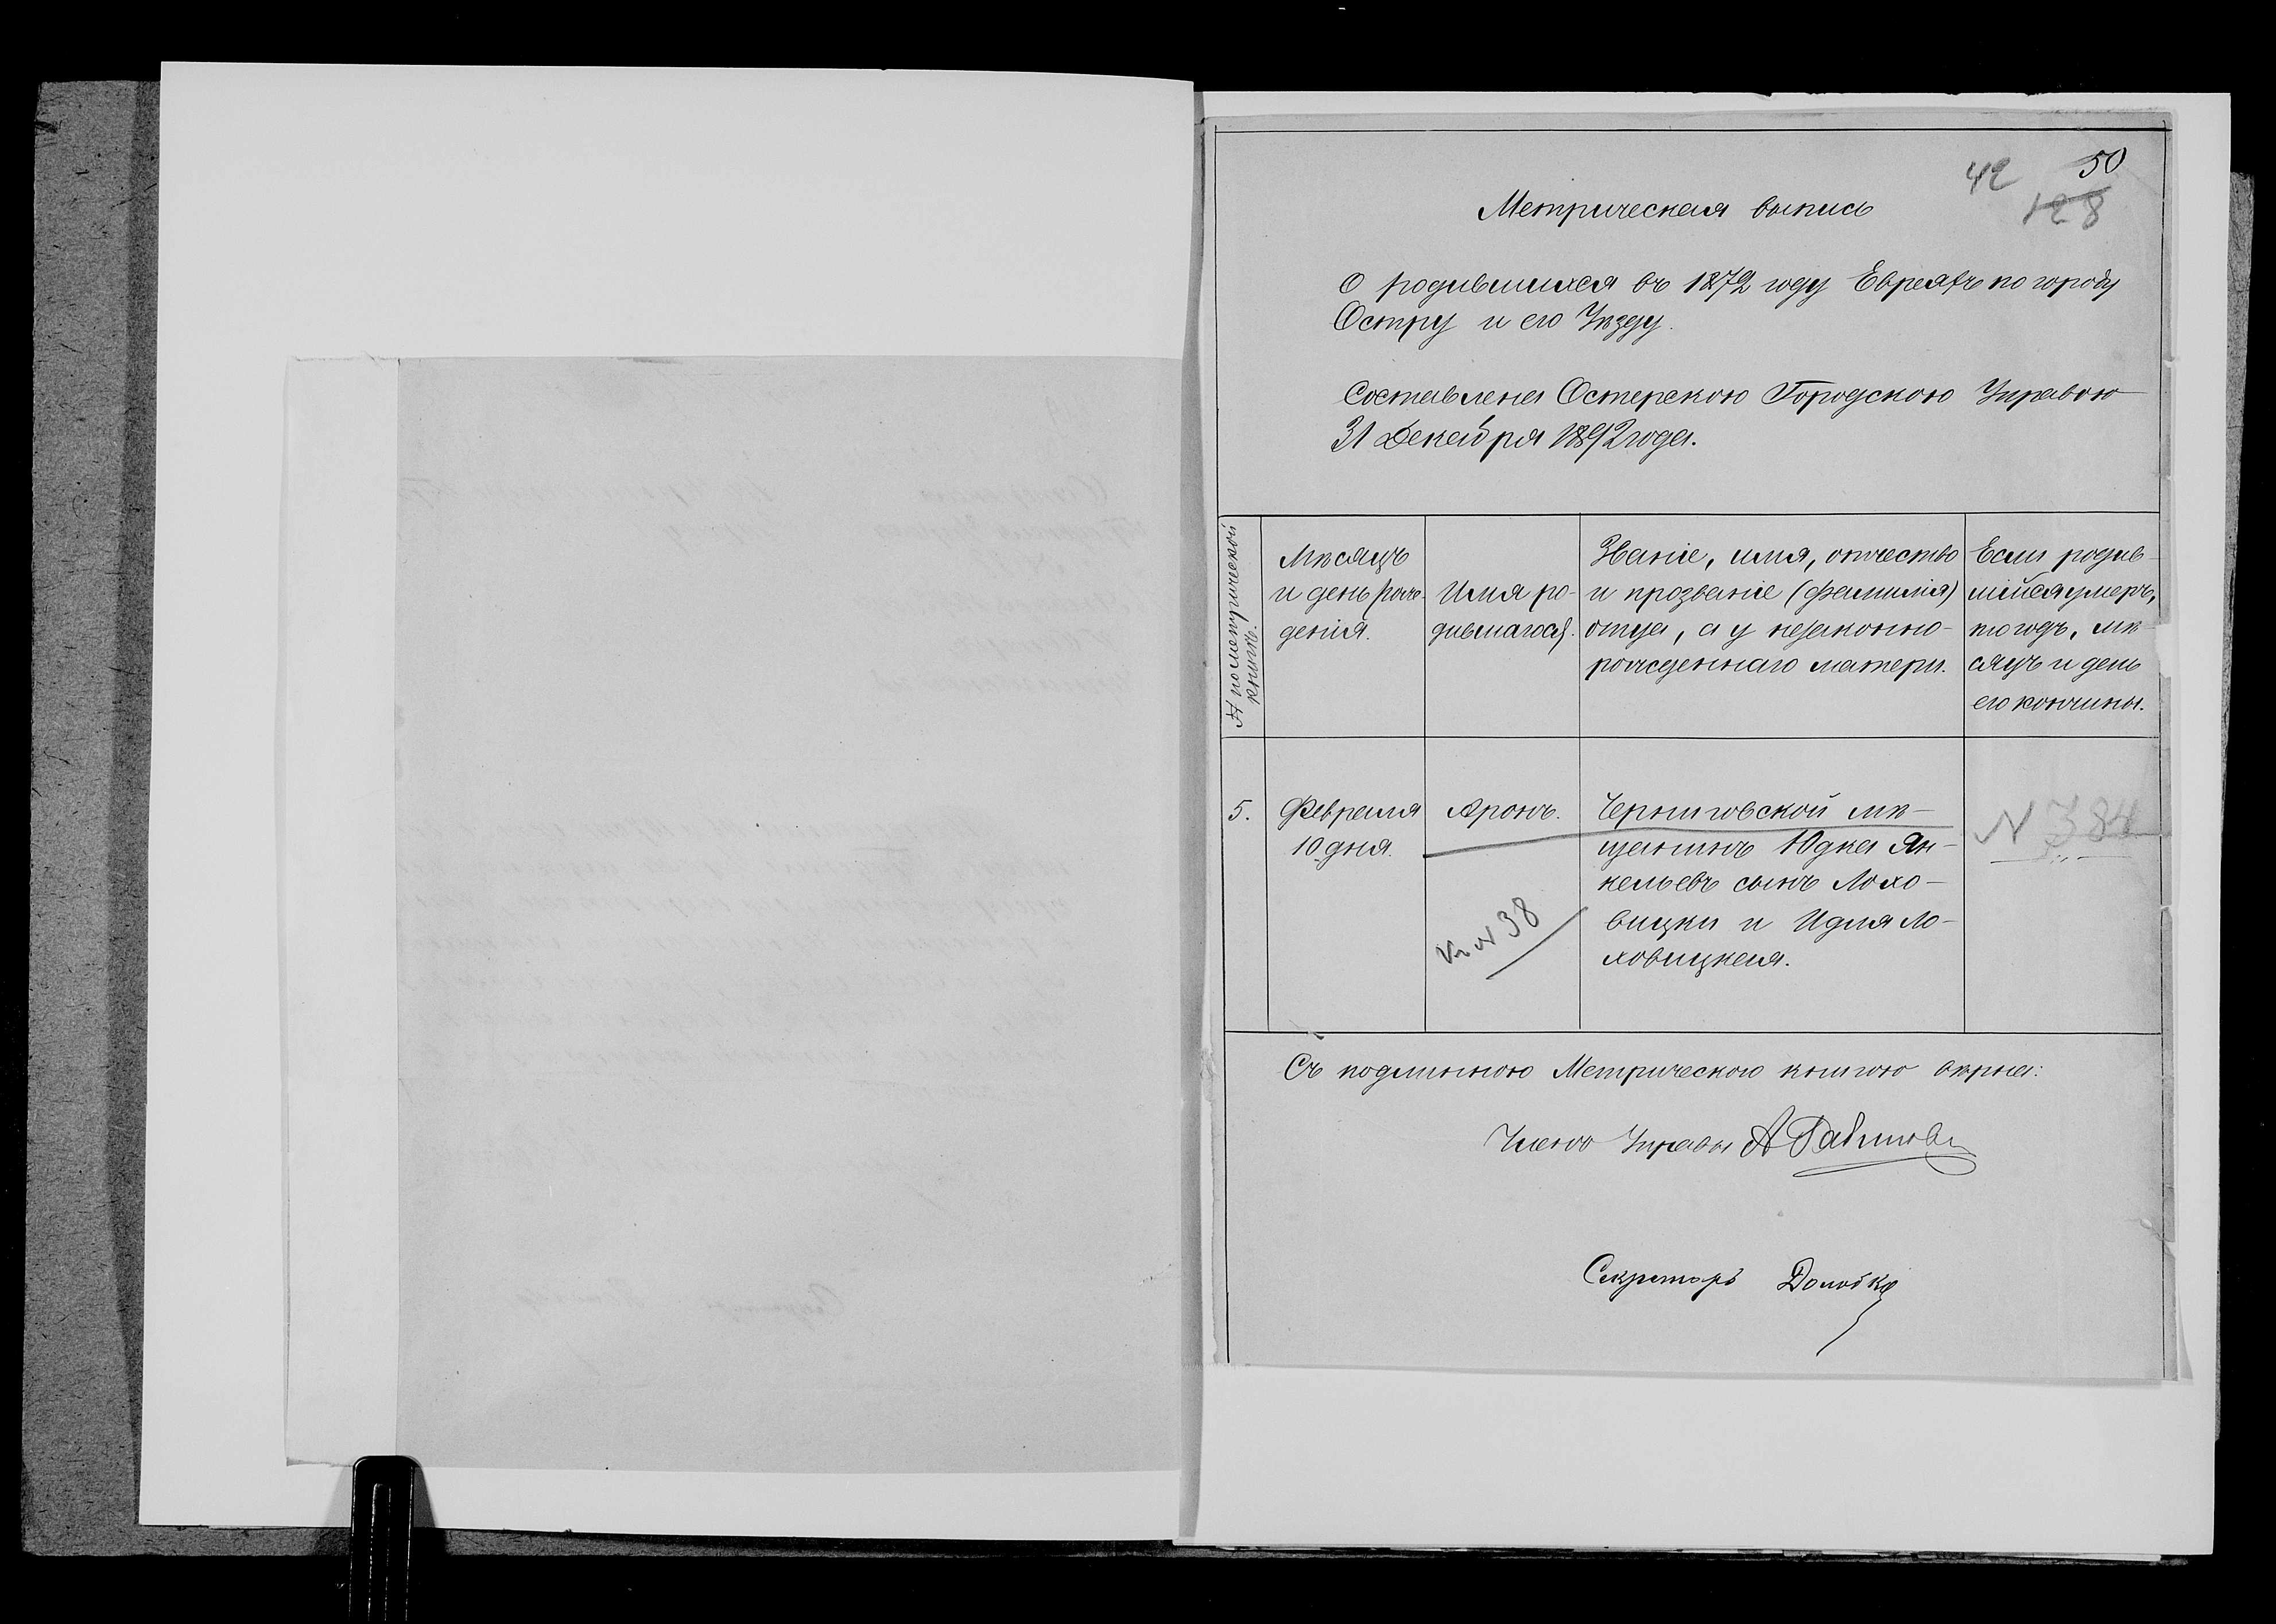 42 50
128
Метрическая выпись
О родившихся въ 1872 году Евреяхъ по городу
Остру и его Уѣзду.
Составлена Остерскою Городскою Управою
31 Декабря 1892 года.
№ по метрической
книгѣ.
Мѣсяцъ
и день рож-
денія.
Имя ро-
дившагося.
Званіе, имя, отчество
и прозваніе (фамилія)
отца, а у незаконно-
рожденнаго матери.
Если родив-
шійся умеръ,
то годъ, мѣ-
сяцъ и день
его кончины.
5.
Февраля
10 дня.
Аронъ.
Черниговской мѣ-
щанинъ Юдка Ян-
кельевъ сынъ Лохо-
вицки и Идля Ло-
ховицкая.
N 384
к N 38
Съ подлинною Метрическою книгою вѣрна:
Членъ Управы А
Секретарь